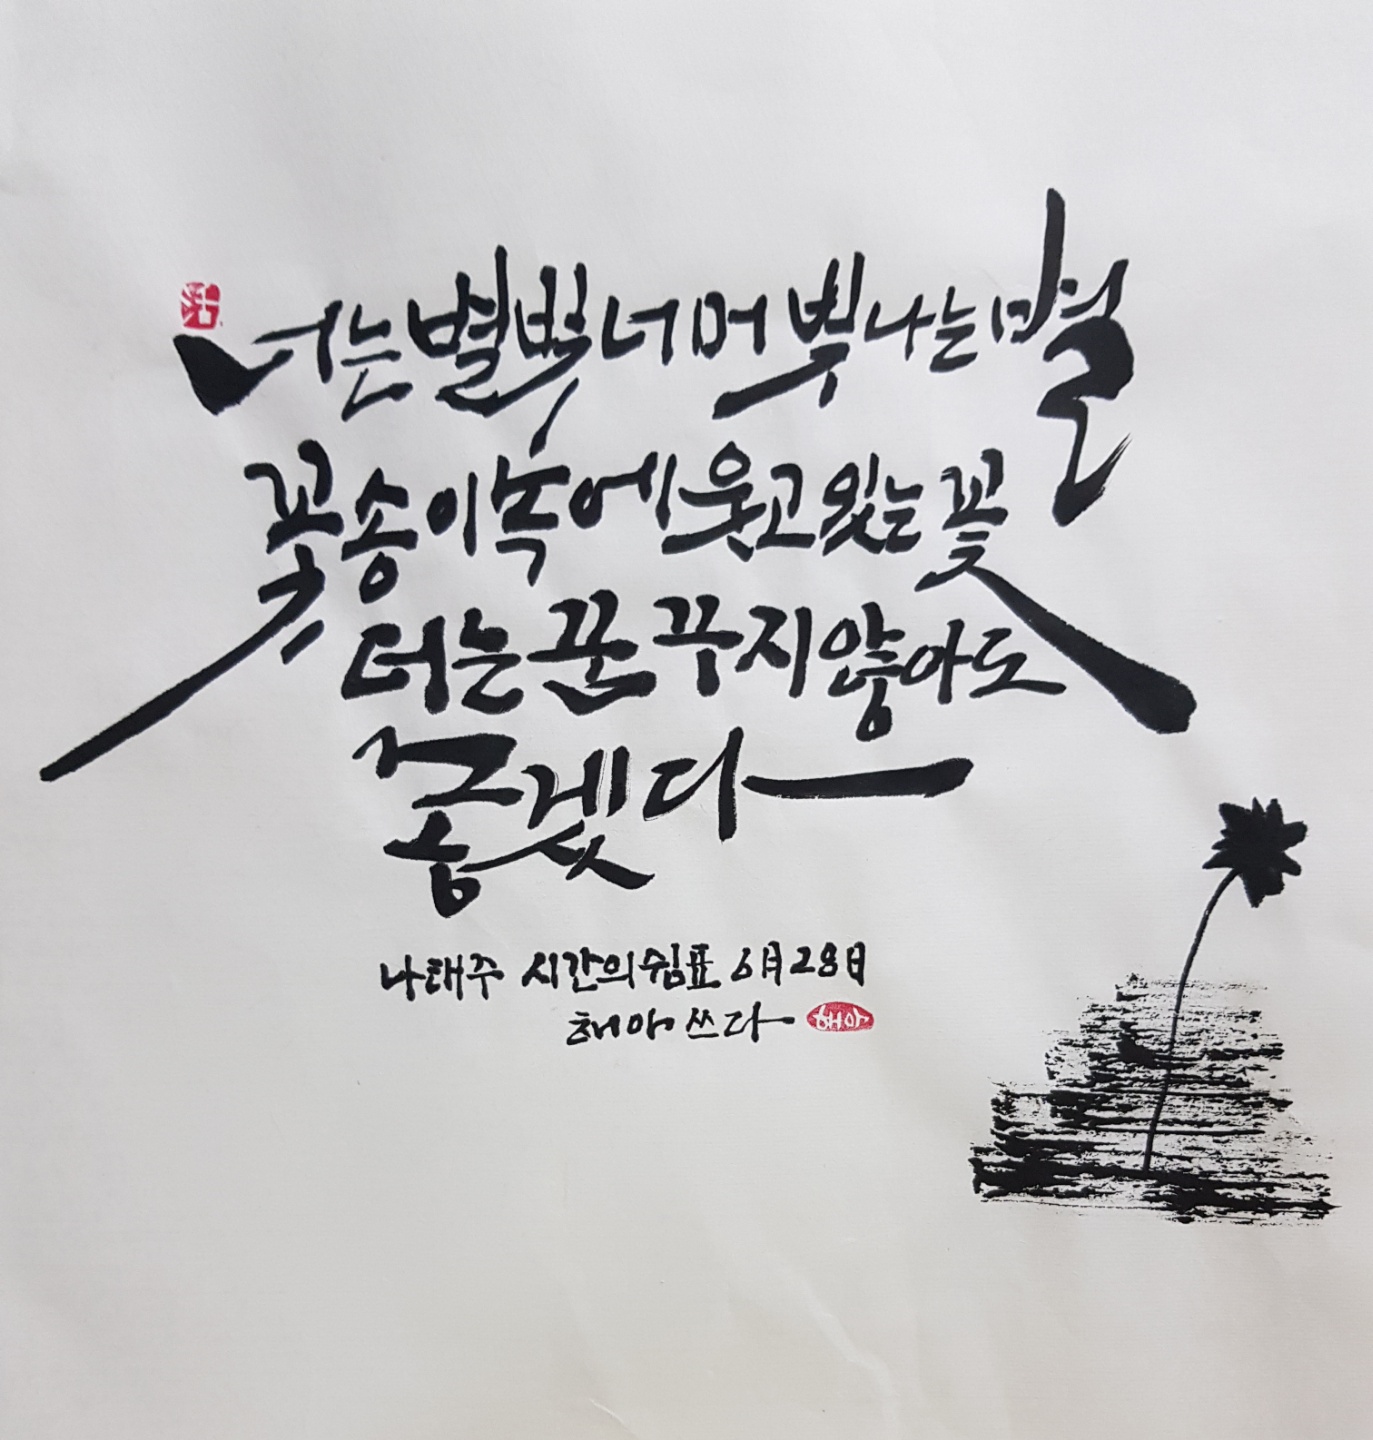 너는 별빛 너머 빛나는 별
꽃송이 속에 웃고 있는 꽃
더는 꿈꾸지 않아도
좋겠다
나태주 시간의 쉼표 6月 28日
해아 쓰다 해아